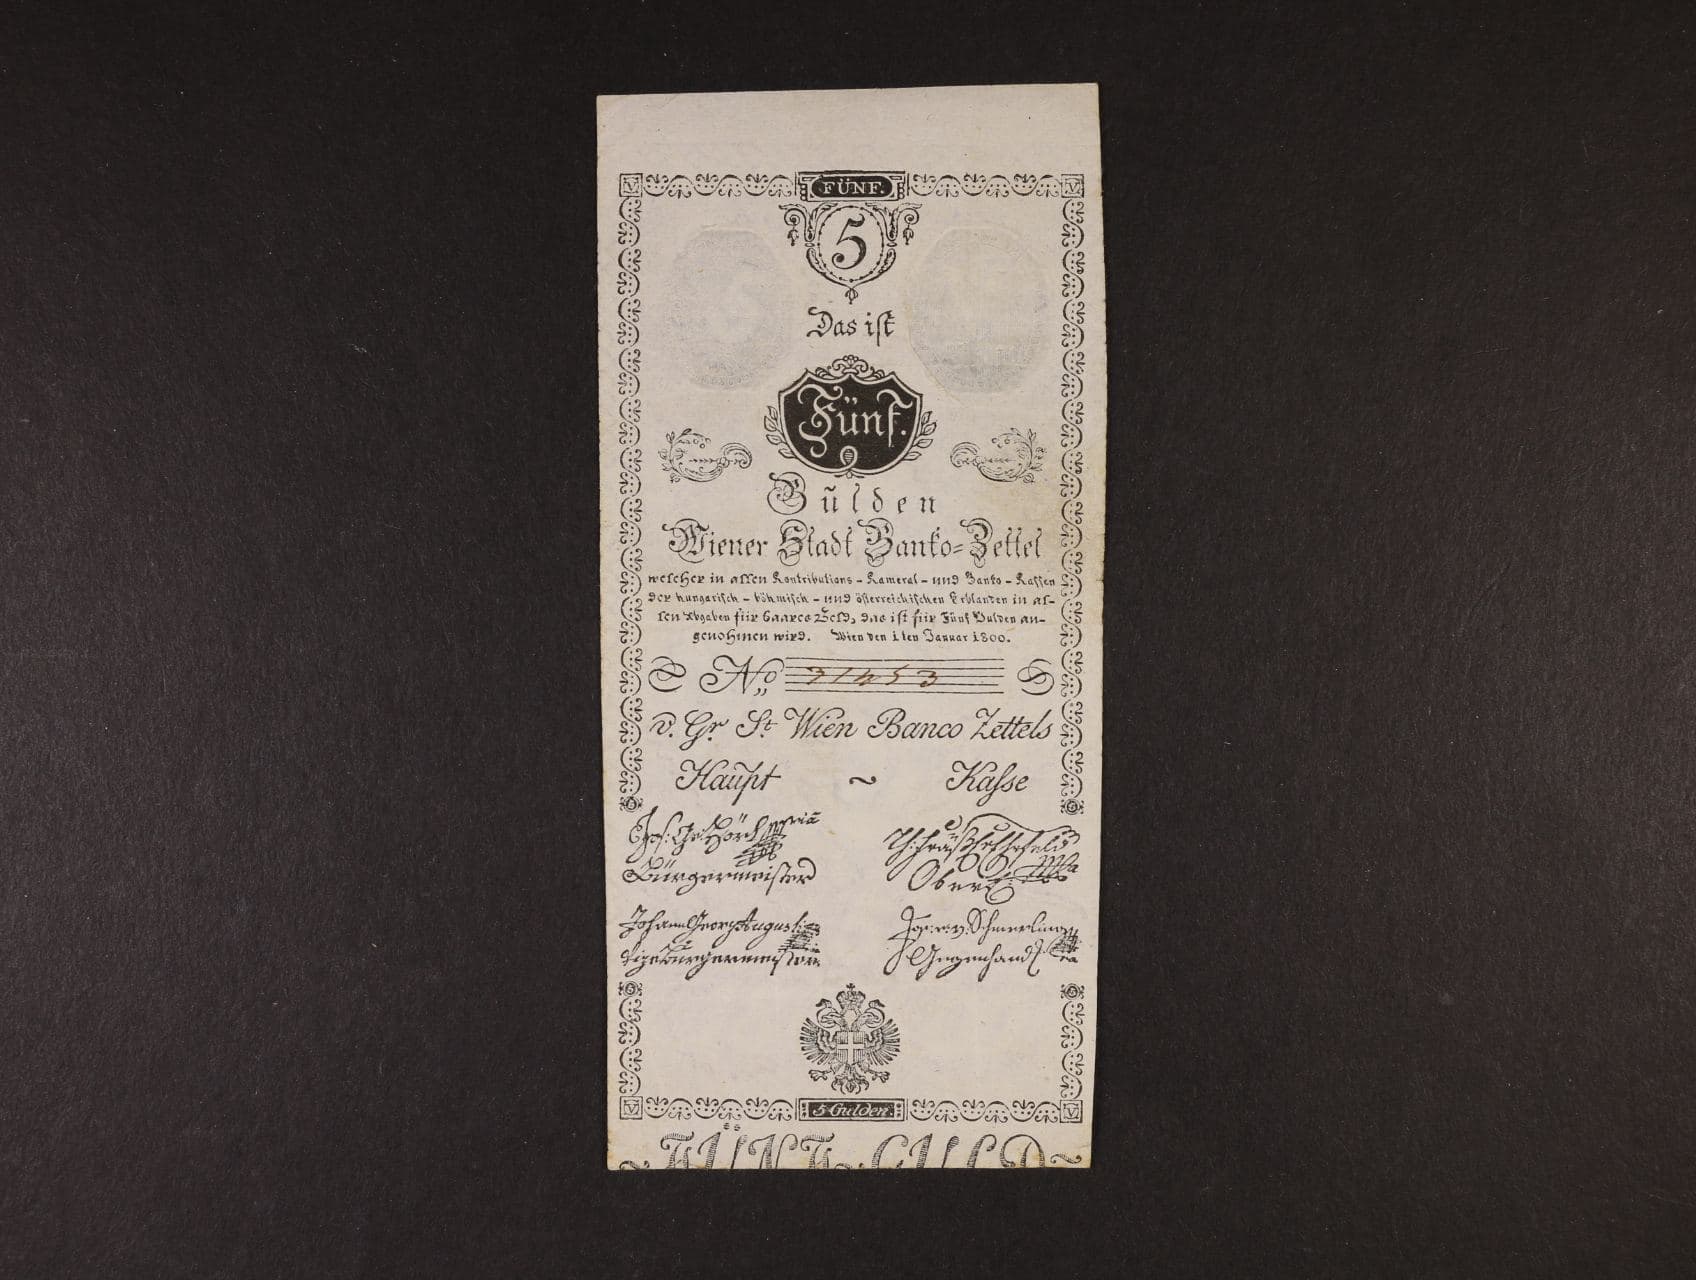 V FÜNF. V
5
Das ist
Fünf.
Gulden
Wiener Stadt Banko=Zettel
welcher in allen Kontributions - Kameral - und Banko - Kassen
der hungarisch - böhmisch - und österreichischen Erblanden in al-
len Abgaben für baares Geld, das ist für Fünf Gulden an-
genohmen wird. Wien den 1ten Januar 1800.
No 31453
v. Gr St Wien Banco Zettels
Haupt ~ Kasse
Bürgermeister
Johann Georg Augusti
Jos: v: v: Schmerling
Vizeburgermeister
Gegenhand
V 5 Gulden. V
~ FÜNF GULD ~